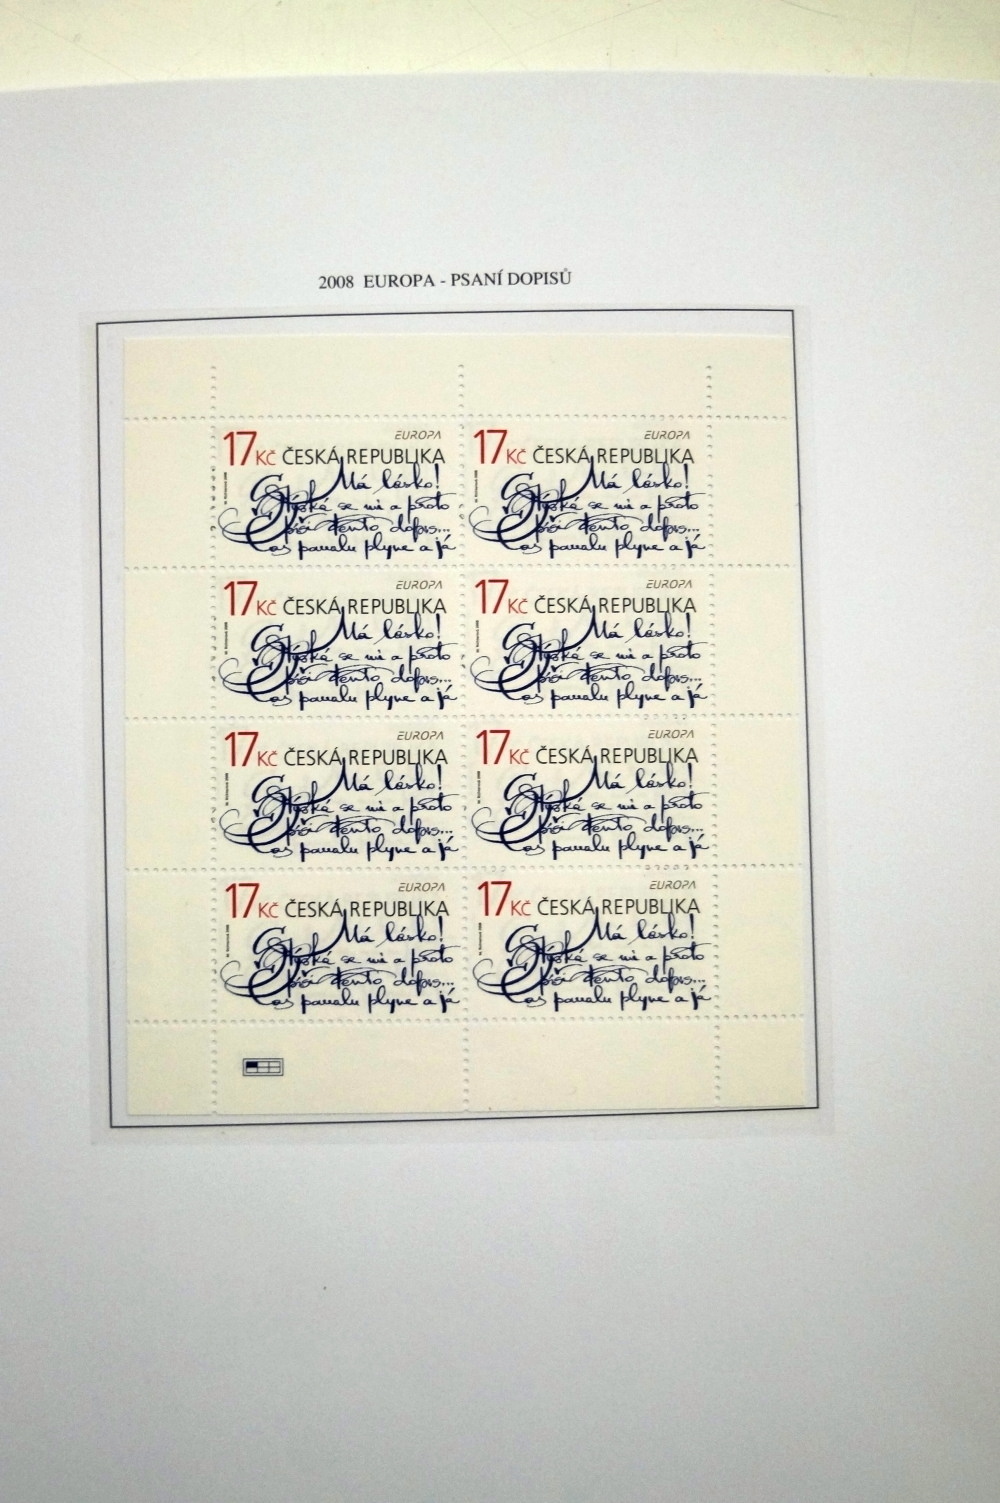 2008 EUROPA - PSANÍ DOPISŮ
EUROPA EUROPA
17 Kč ČESKÁ REPUBLIKA 17 Kč ČESKÁ REPUBLIKA
Má lásko! Má lásko!
Stýská se mi a proto Stýská se mi a proto
píši tento dopis... píši tento dopis...
Čas pomalu plyne a já Čas pomalu plyne a já
EUROPA EUROPA
17 Kč ČESKÁ REPUBLIKA 17 Kč ČESKÁ REPUBLIKA
Má lásko! Má lásko!
Stýská se mi a proto Stýská se mi a proto
píši tento dopis... píši tento dopis...
Čas pomalu plyne a já Čas pomalu plyne a já
EUROPA EUROPA
17 Kč ČESKÁ REPUBLIKA 17 Kč ČESKÁ REPUBLIKA
Má lásko! Má lásko!
Stýská se mi a proto Stýská se mi a proto
píši tento dopis... píši tento dopis...
Čas pomalu plyne a já Čas pomalu plyne a já
EUROPA EUROPA
17 Kč ČESKÁ REPUBLIKA 17 Kč ČESKÁ REPUBLIKA
Má lásko! Má lásko!
Stýská se mi a proto Stýská se mi a proto
píši tento dopis... píši tento dopis...
Čas pomalu plyne a já Čas pomalu plyne a já